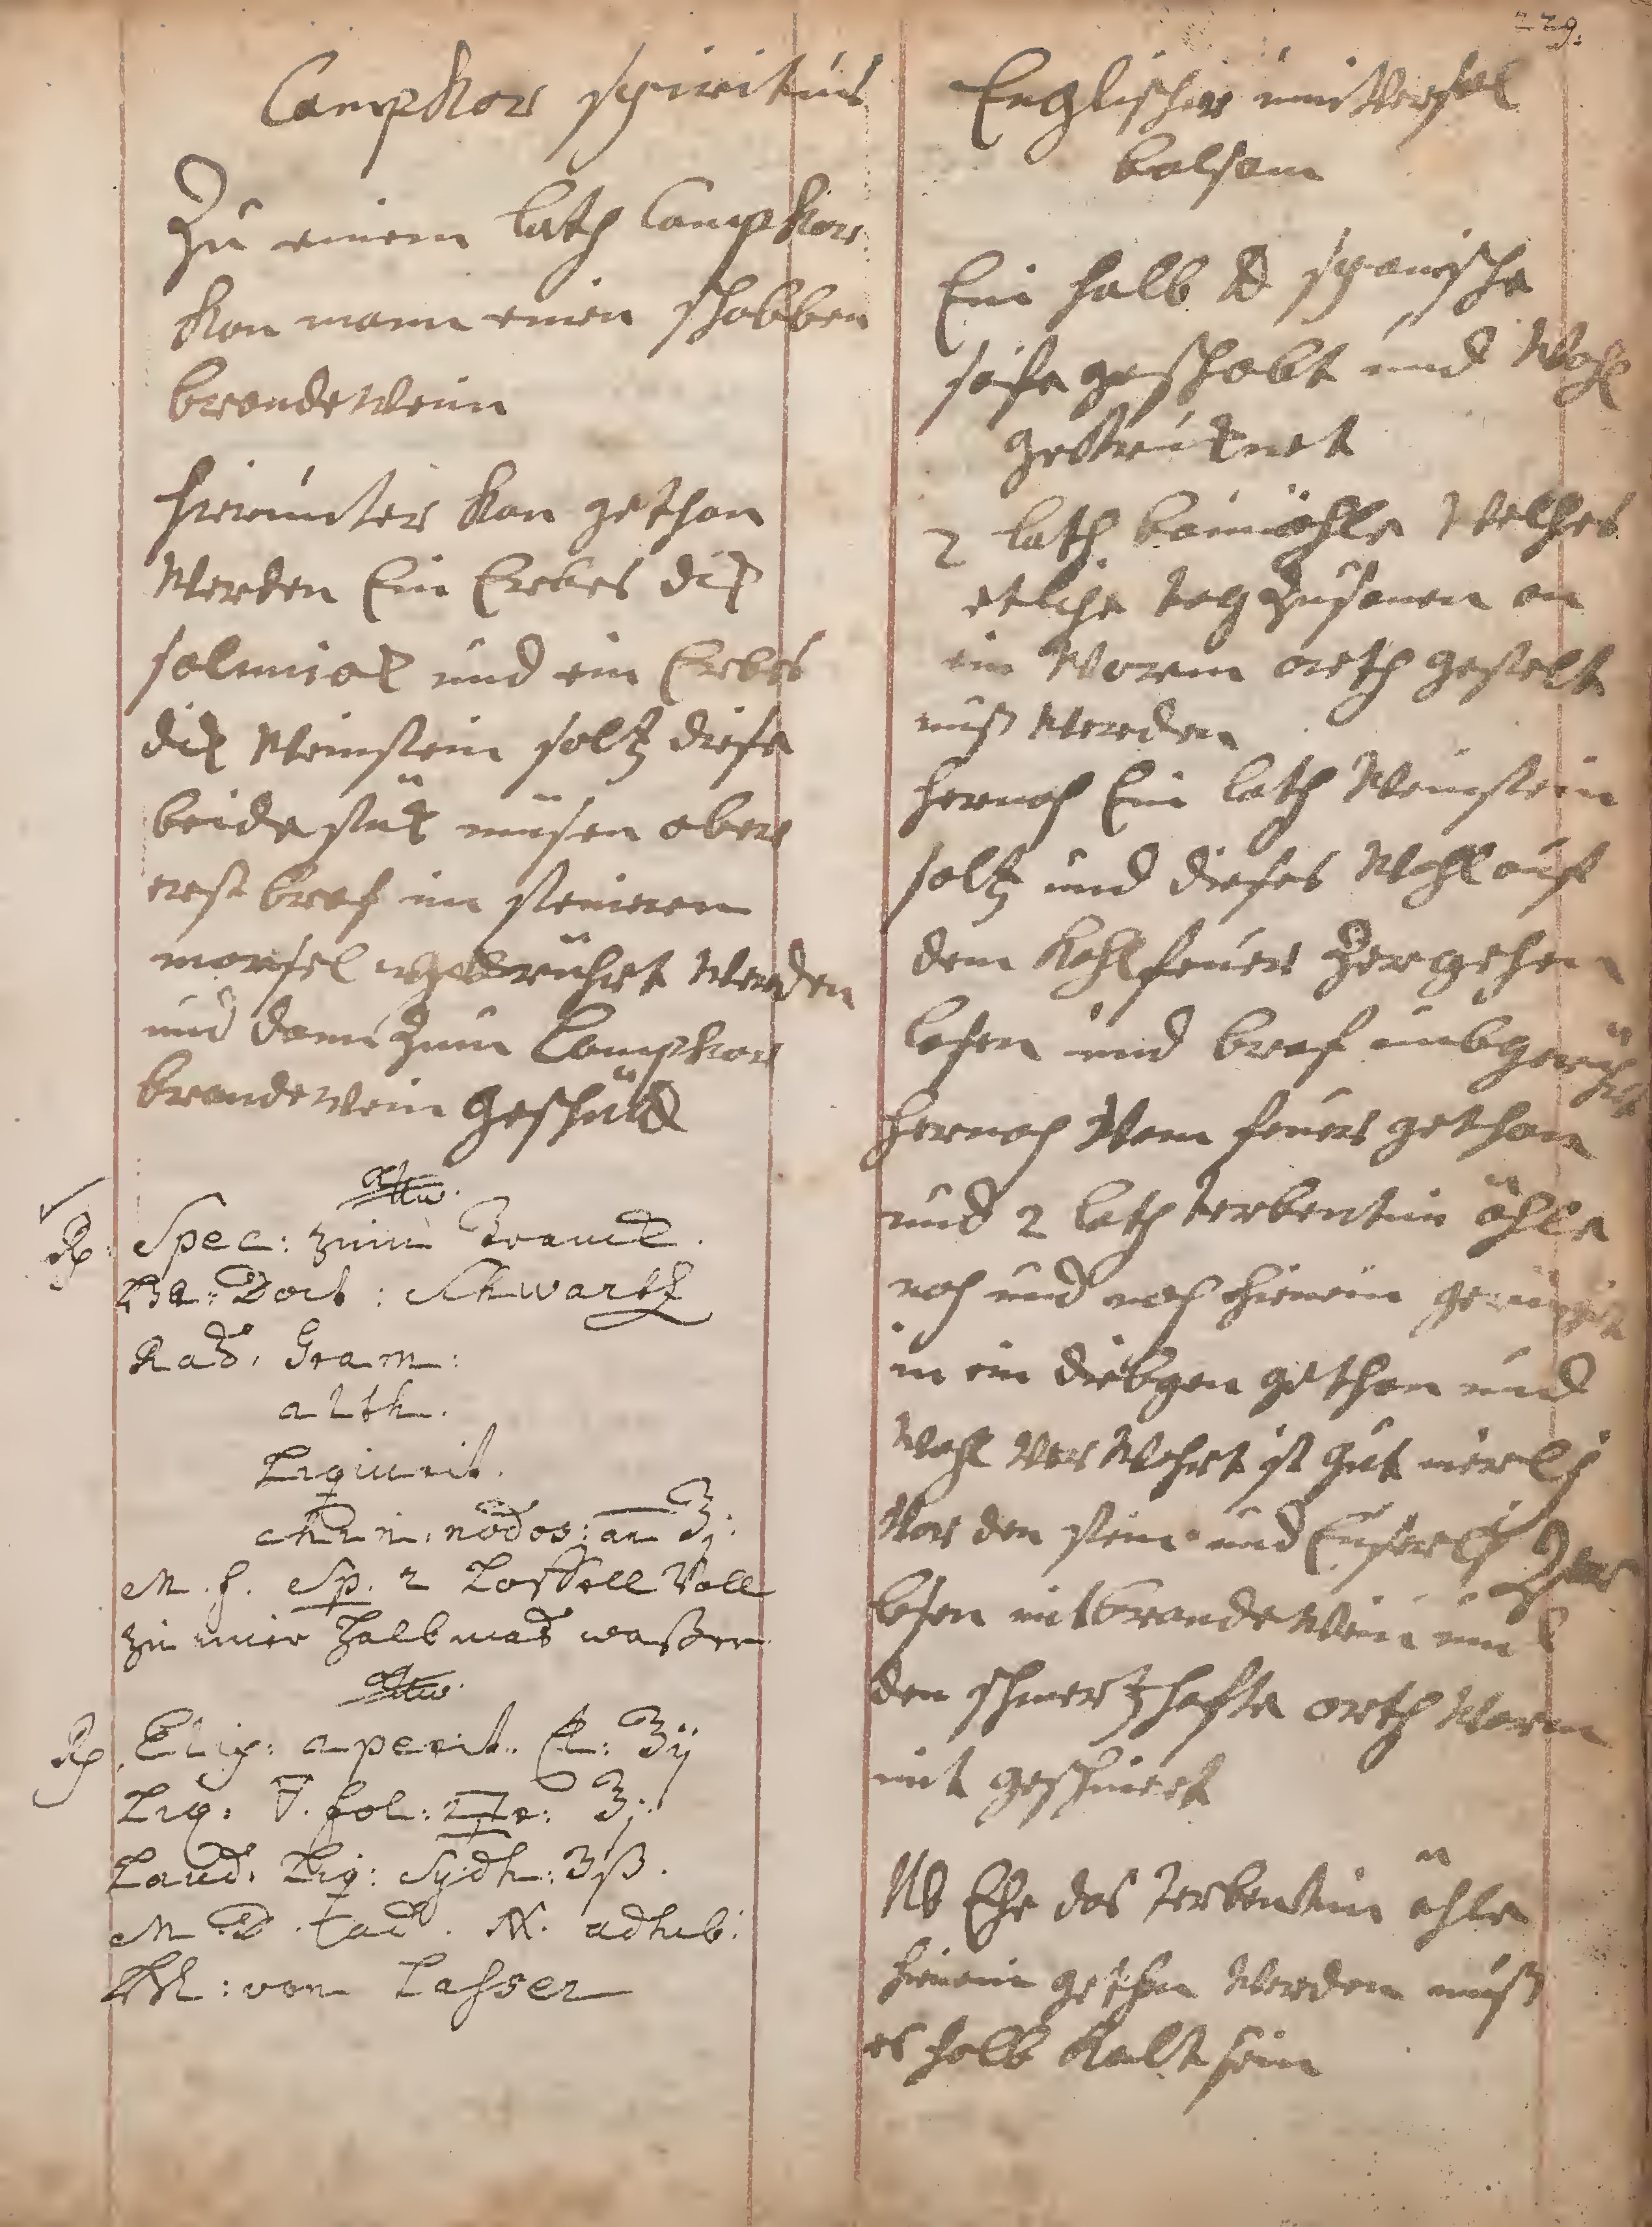 229.
Camphor spiritus
Zu einem loth Camphor
kan mann einen schobben
brandewein
hierunter kan gethan
werden Ein Erbes dick
salmiak und ein Erbes
dick weinstein saltz diese
beide stück müsen aber
erst braf im steineren
morsel gerührt werden
und dann zum Camphor
brandewein geschütt
Rp. Spec: zum Tranck.
Doct: Schwartz
Rad. Gram:
alth.
Liquirit.
nodos: an ℥j.
M. f. Sp. 2 Löffell Voll
zu einer halb mas waßer
Rp. Elix: aperit. Cl: ʒij
Liq: fol: ʒj.
Laud. Liq: Sydh: ʒß.
M D adhib:
von Lasser
Englischer universal
balsam
Ein halb ℔ spanische
seife geschabt und wohl
getrücknet
2 loth baumöhle welches
etliche tag zusamen an
ein warem orth gestelt
mus werden
hernach Ein loth weinstein
saltz und dieses wohl auf
dem kohlfeuer zergehen
lasen und braf umbgerührt
hernach vom feuer gethan
und 2 loth terbentin öhle
nach und nach hienein gerührt
in ein diebgen gethan und
wohl verwahrt ist gut inerlich
vor den stein und Euserlich zer
lasen mit brandewein und
den schmertzhafte orth warm
mit geschmiert
NB Ehe das terbentin öhle
hienein gethan werden muß
es halb kalt sein